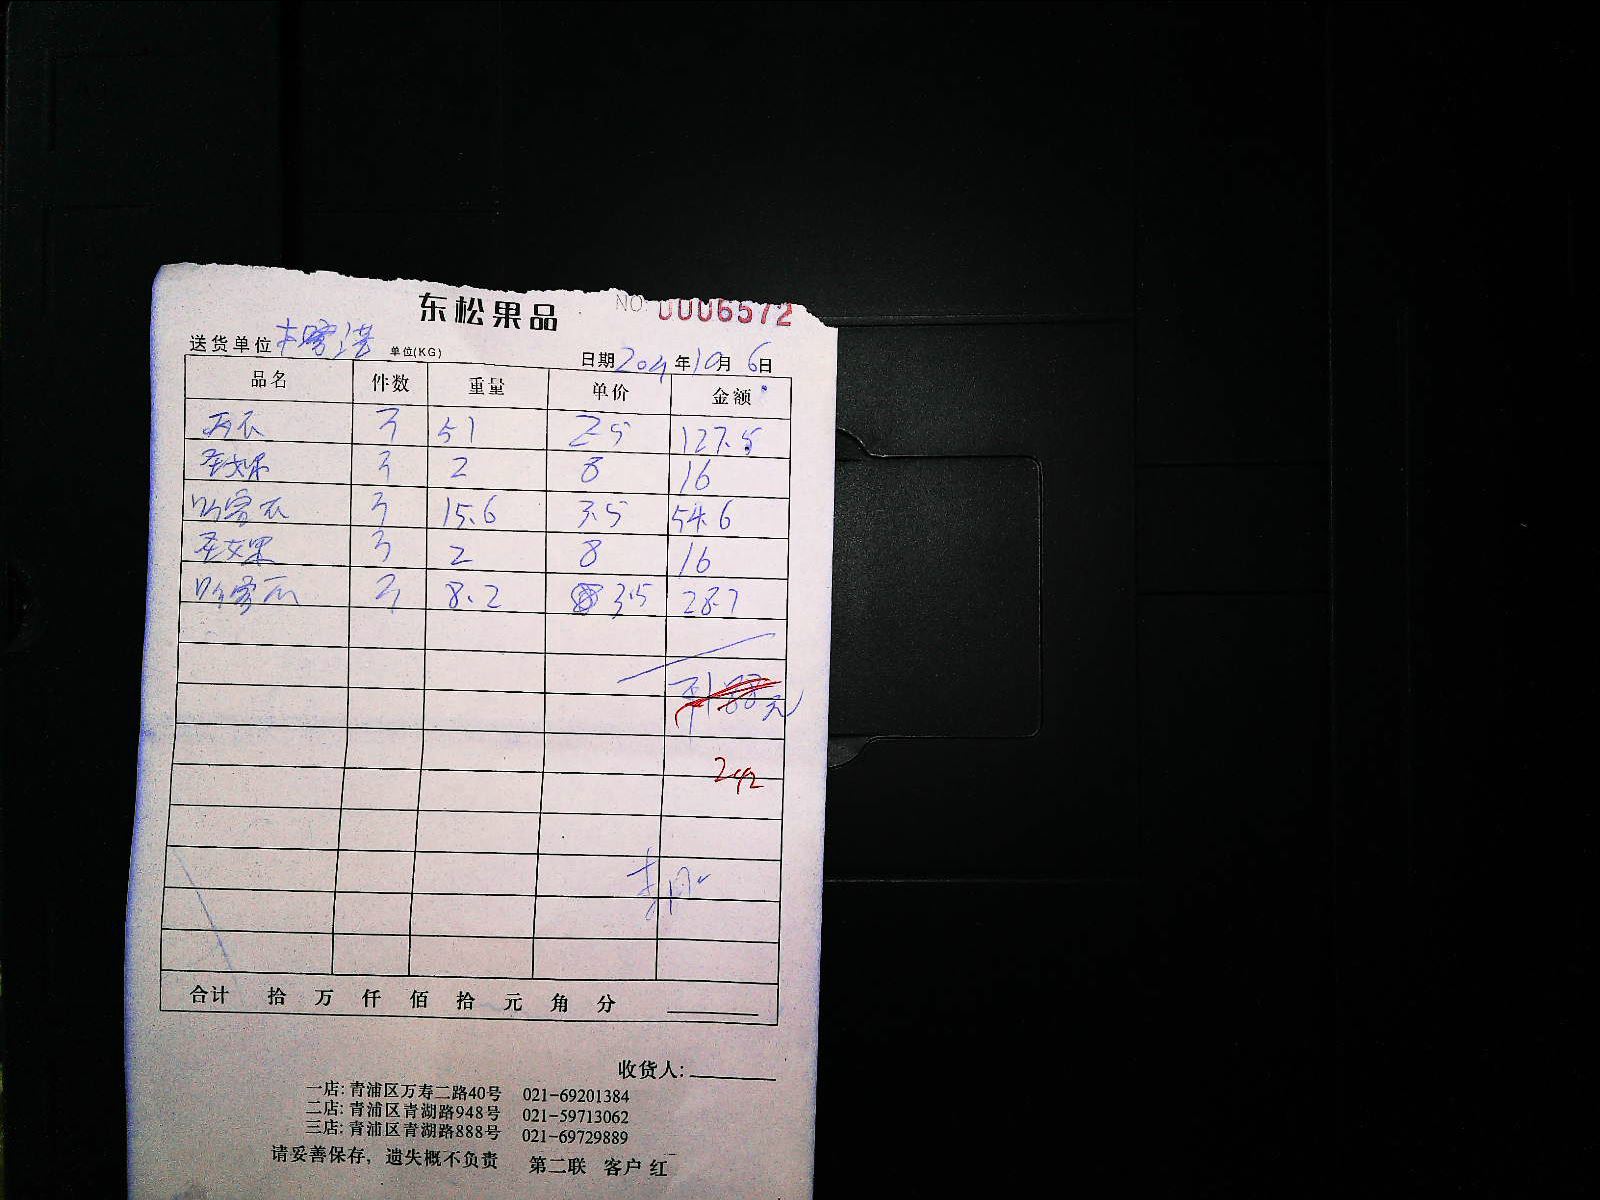 东松果品
NO 0006572
送货单位 单位(KG) 日期 年10月6日
品名 件数 重量 单价 金额
51 25 127.5
圣女果 2 8 16
哈密瓜 15.6 3.5 54.6
圣女果 2 8 16
哈密瓜 8.2 3.5 28.7
242
合计 拾 万 仟 佰 拾 元 角 分
收货人:
一店: 青浦区万寿二路40号 021-69201384
二店: 青浦区青湖路948号 021-59713062
三店: 青浦区青湖路888号 021-69729889
请妥善保存, 遗失概不负责 第二联 客户 红